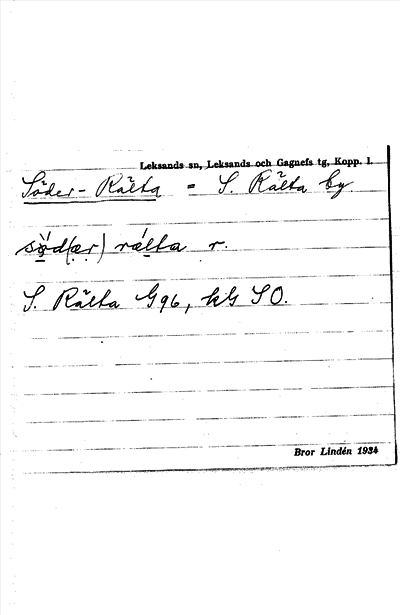 Leksands sn, Leksands och Gagnefs tg, Kopp. l.
Söder-Rälta = S. Rälta by.
rälta r.
S. Rälta G96, hG SO.
Bror Lindén 1934